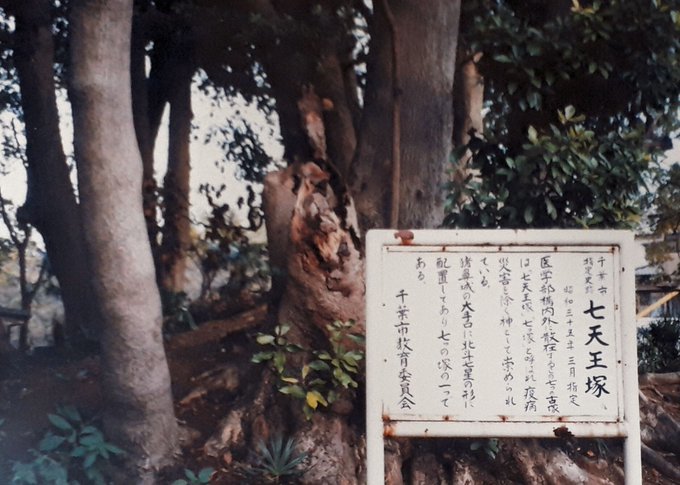 千葉市
指定史跡
七天王塚
昭和三十五年三月指定
医学部構内外に散在する七つの古塚
は七天王塚、七つ塚と呼ばれ疫病
災害を除く神として崇められ
ている。
猪鼻城の大手口に北斗七星の形に
配置してあり七つの塚の一つで
ある
千葉市教育委員会